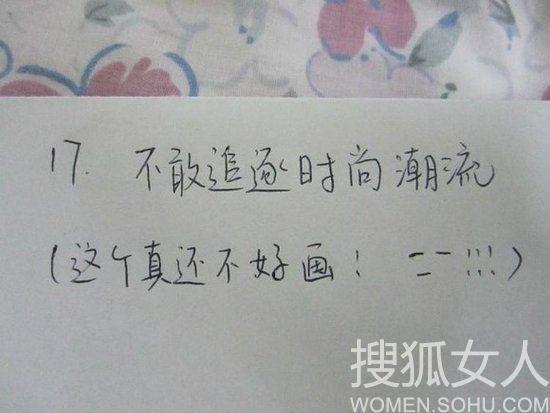 17. 不敢追逐时尚潮流
(这个真还不好画！ 二一!!!)
搜狐女人
WOMEN.SOHU.COM